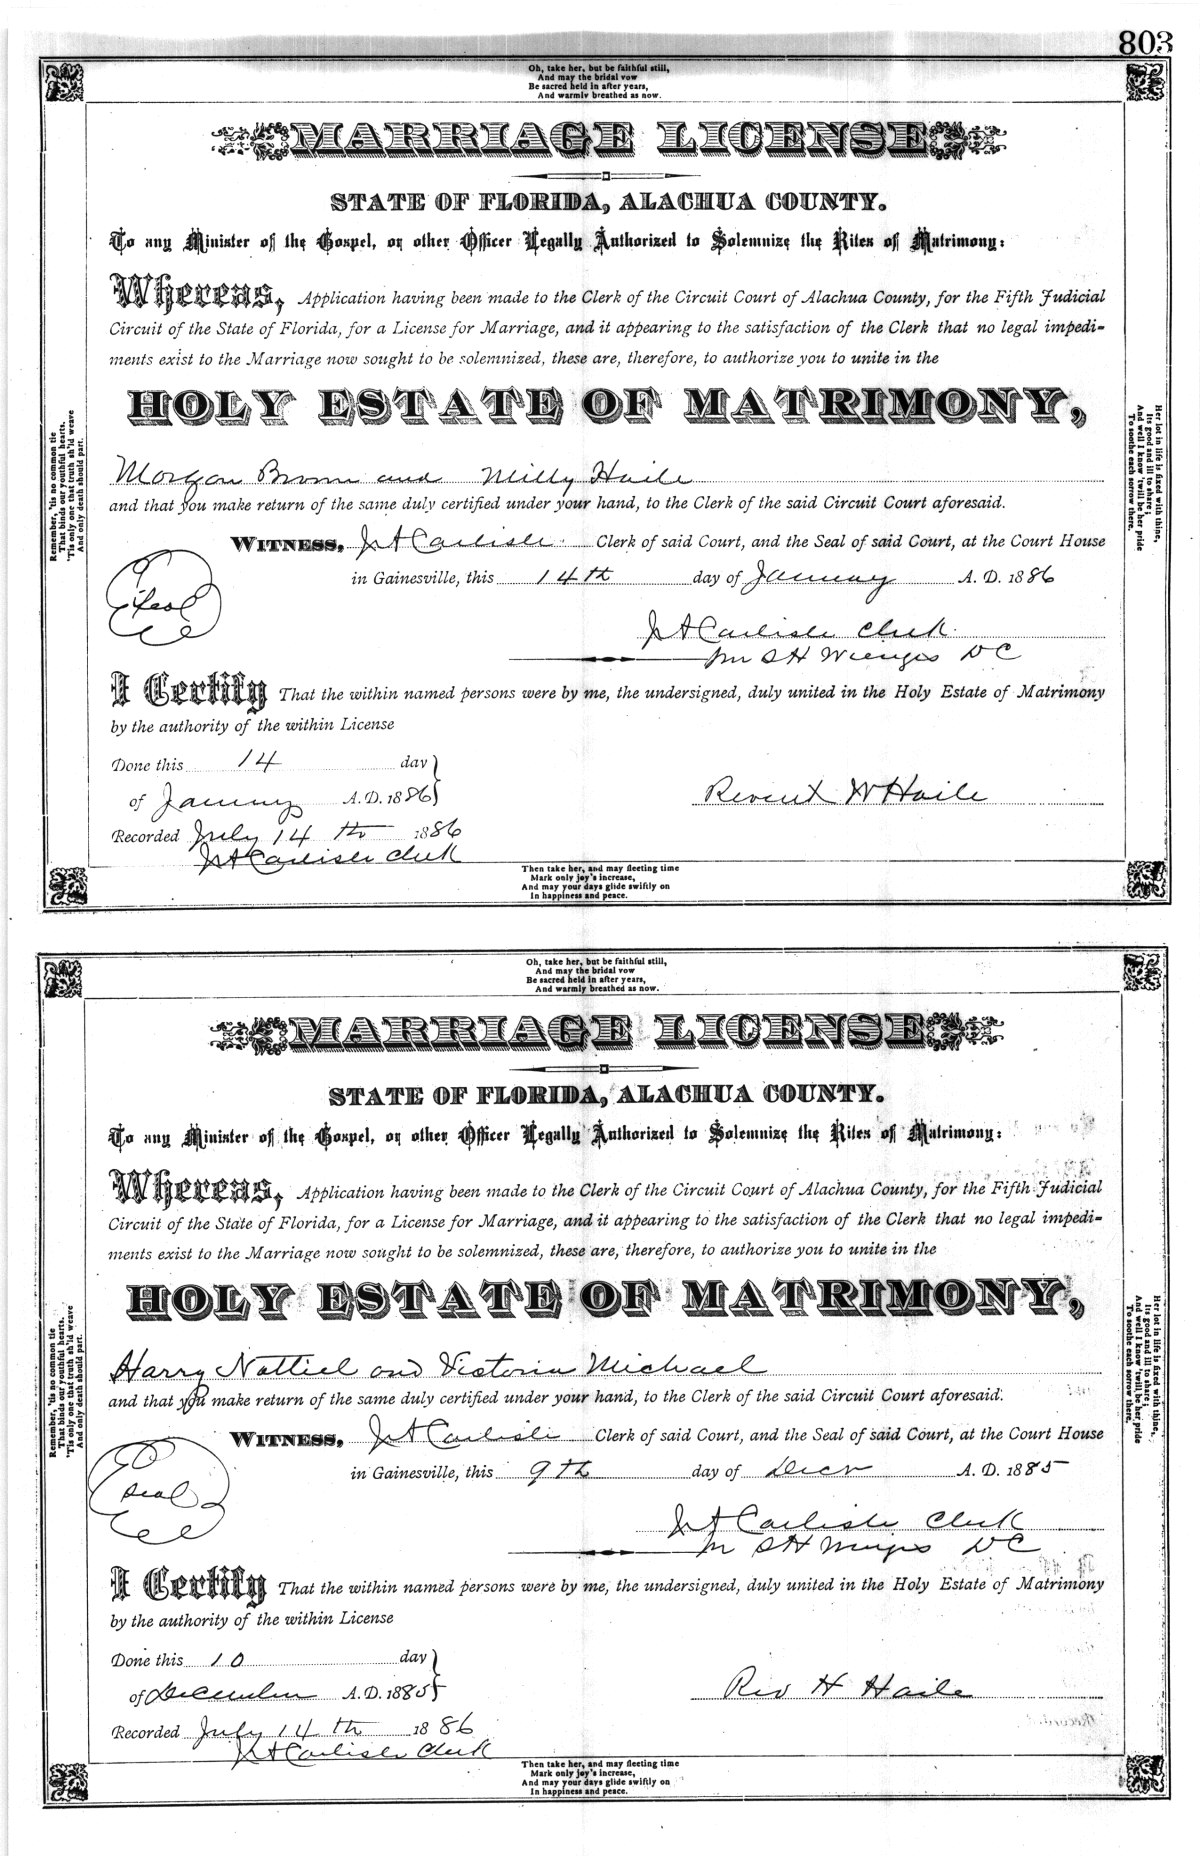 803
Oh, take her, but be faithful still,
And may the bridal vow
Be sacred held in after years,
And warmly breathed as now.
MARRIAGE LICENSE
STATE OF FLORIDA, ALACHUA COUNTY.
To any Minister of the Gospel, or other Officer Legally Authorized to Solemnize the Rites of Matrimony:
Whereas, Application having been made to the Clerk of the Circuit Court of Alachua County, for the Fifth Judicial
Circuit of the State of Florida, for a License for Marriage, and it appearing to the satisfaction of the Clerk that no legal impedi-
ments exist to the Marriage now sought to be solemnized, these are, therefore, to authorize you to unite in the
HOLY ESTATE OF MATRIMONY,
Remember, 'tis no common tie
That binds our youthful hearts,
'Tis only one that truth sh'ld weave
And only death should part.
Her lot in life is fixed with thine,
Its good and ill to share;
And well I know 'twill be her pride
To soothe each sorrow there.
Morgan Brown and Milly Haile
and that you make return of the same duly certified under your hand, to the Clerk of the said Circuit Court aforesaid.
WITNESS, J A Carlisle Clerk of said Court, and the Seal of said Court, at the Court House
Seal
in Gainesville, this 14th day of January A. D. 1886
J A Carlisle Clerk
S H Wienges DC
I Certify That the within named persons were by me, the undersigned, duly united in the Holy Estate of Matrimony
by the authority of the within License
Done this 14 day
of January A.D. 1886
W Haile
Recorded July 14 th 1886
J A Carlisle Clerk
Then take her, and may fleeting time
Mark only joy's increase,
And may your days glide swiftly on
In happiness and peace.
Oh, take her, but be faithful still,
And may the bridal vow
Be sacred held in after years,
And warmly breathed as now.
MARRIAGE LICENSE
STATE OF FLORIDA, ALACHUA COUNTY.
To any Minister of the Gospel, or other Officer Legally Authorized to Solemnize the Rites of Matrimony:
Whereas, Application having been made to the Clerk of the Circuit Court of Alachua County, for the Fifth Judicial
Circuit of the State of Florida, for a License for Marriage, and it appearing to the satisfaction of the Clerk that no legal impedi-
ments exist to the Marriage now sought to be solemnized, these are, therefore, to authorize you to unite in the
HOLY ESTATE OF MATRIMONY,
Remember, 'tis no common tie
That binds our youthful hearts,
'Tis only one that truth sh'ld weave
And only death should part.
Her lot in life is fixed with thine,
Its good and ill to share;
And well I know 'twill be her pride
To soothe each sorrow there.
Harry Nattiel and Victoria Michael
and that you make return of the same duly certified under your hand, to the Clerk of the said Circuit Court aforesaid.
WITNESS, J A Carlisle Clerk of said Court, and the Seal of said Court, at the Court House
Seal
in Gainesville, this 9th day of Decr A. D. 1885
J A Carlisle Clerk
S H Wienges DC
I Certify That the within named persons were by me, the undersigned, duly united in the Holy Estate of Matrimony
by the authority of the within License
Done this 10 day
of December A.D. 1885
Rev H Haile
Recorded July 14 th 1886
J A Carlisle Clerk
Then take her, and may fleeting time
Mark only joy's increase,
And may your days glide swiftly on
In happiness and peace.